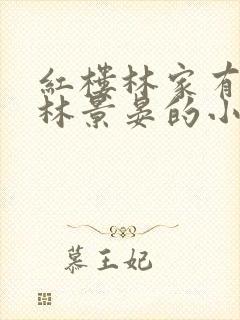 紅樓林家有
林景晏的小
慕王妃